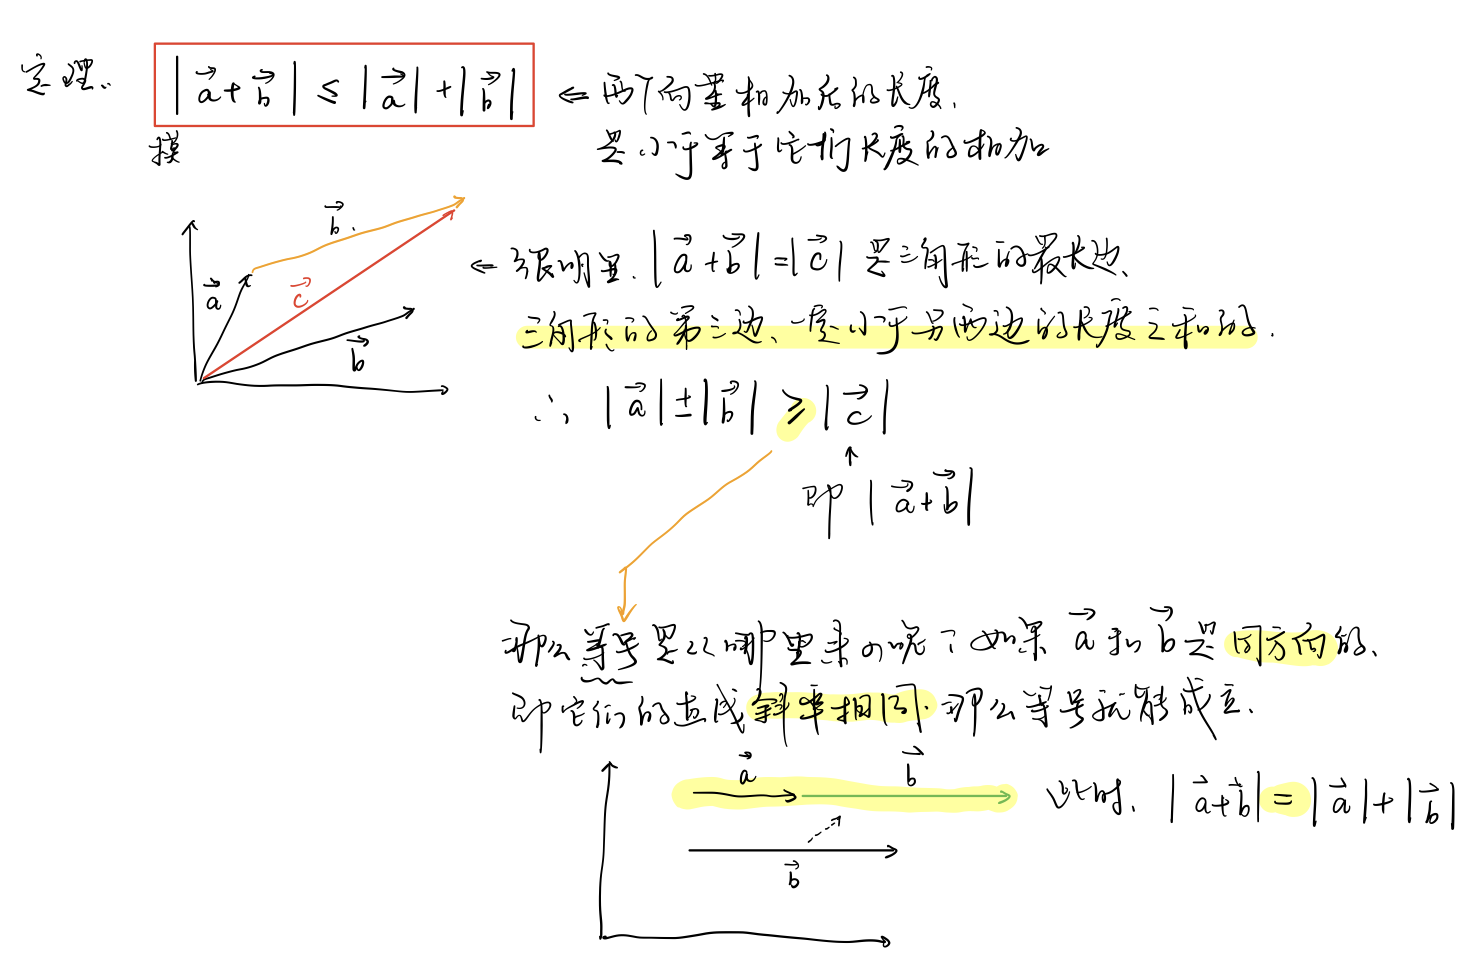 定理. |a⃗+b⃗| ≤ |a⃗|+|b⃗| ⇐ 两个向量相加后的长度,
模 是小于等于它们长度的相加
b⃗.
a⃗
c⃗
b⃗
⇐ 很明显. |a⃗+b⃗|=|c⃗| 是三角形的最长边、
三角形的第三边、一定小于另两边的长度之和的.
∴ |a⃗|±|b⃗| ≥ |c⃗|
↑
即 |a⃗+b⃗|
那么等号是从哪里来的呢？如果 a⃗ 和 b⃗ 是同方向的、
即它们的直线斜率相同. 那么等号就能成立.
a⃗ b⃗
此时、|a⃗+b⃗|=|a⃗|+|b⃗|
b⃗